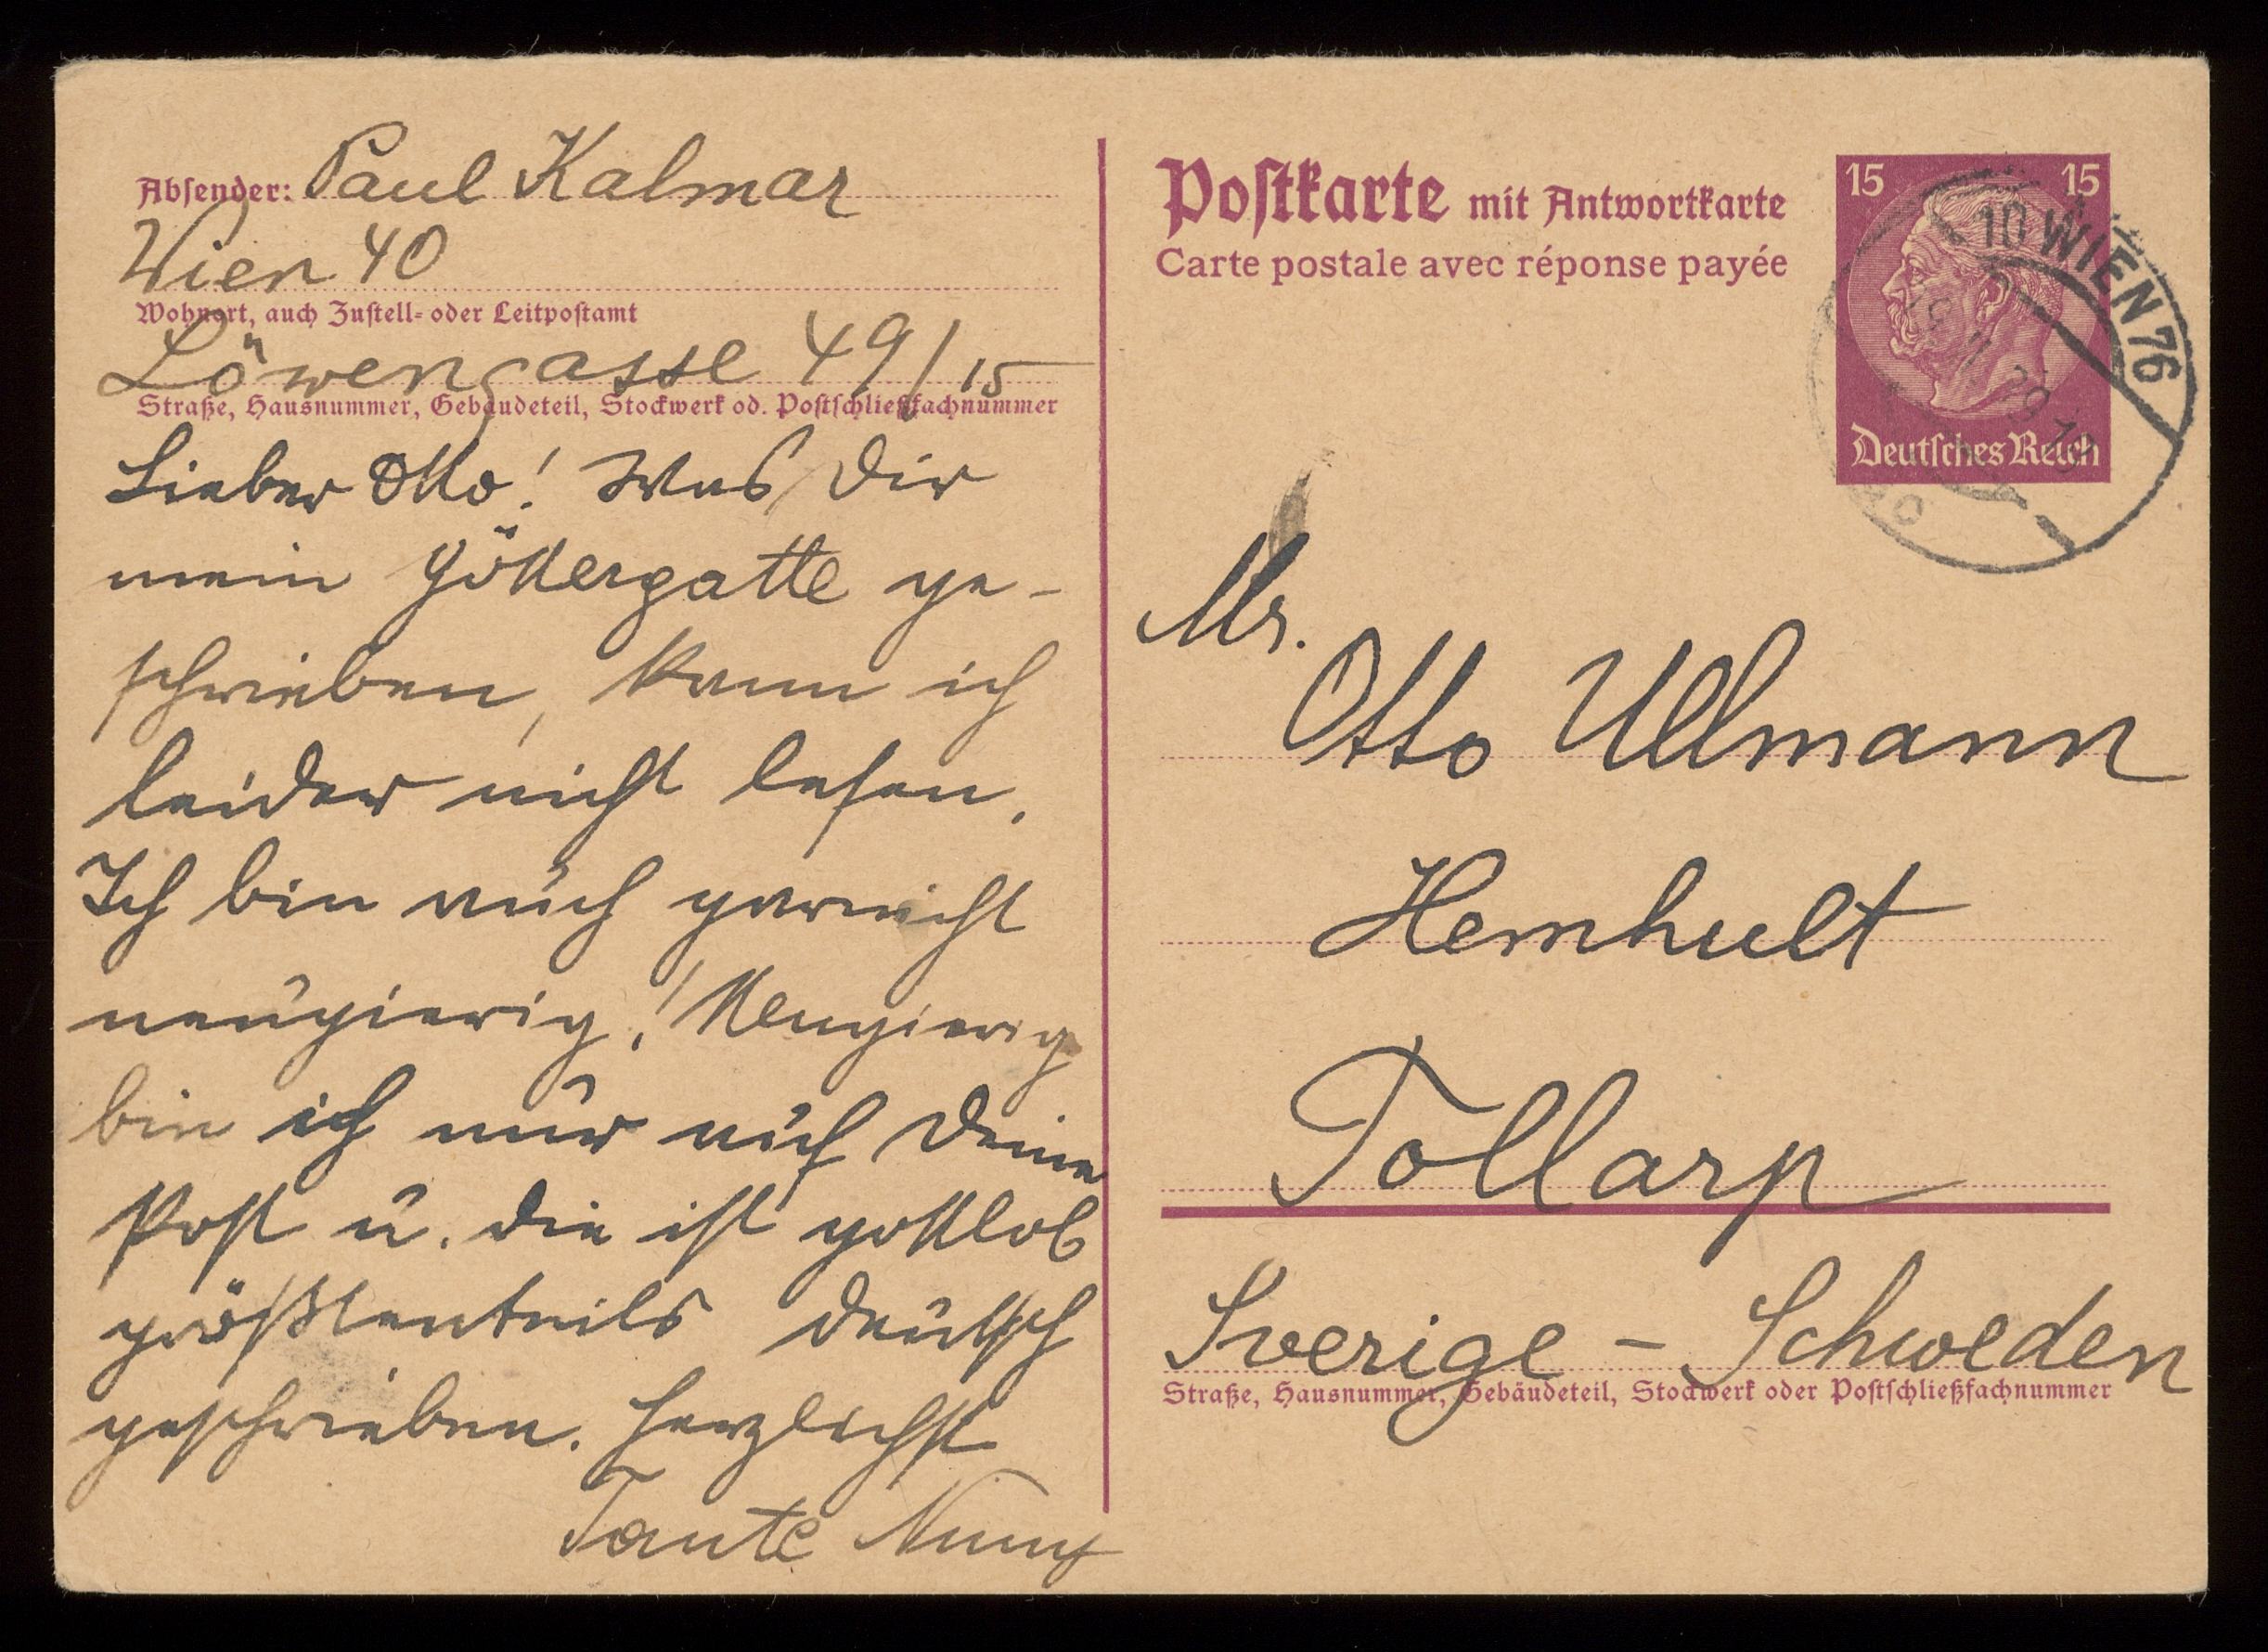 Absender: Paul Kalmar
Wien 40
Wohnort, auch Zustell- oder Leitpostamt
Löwengasse 49/15
Straße, Hausnummer, Gebäudeteil, Stockwerk od. Postschließfachnummer
Lieber Otto! Was Dir
mein Göttergatte ge-
schrieben, kann ich
leider nicht lesen.
Ich bin auch garnicht
neugierig! Neugierig
bin ich nur auf Deine
Post u. die ist gottlob
größtenteils deutsch
geschrieben. Herzlichst
Tante
Postkarte mit Antwortkarte
Carte postale avec réponse payée
15 15
Deutsches Reich
10 WIEN 76
Mr.
Otto Ullmann
Hemhult
Tollarp
Sverige - Schweden
Straße, Hausnummer, Gebäudeteil, Stockwerk oder Postschließfachnummer